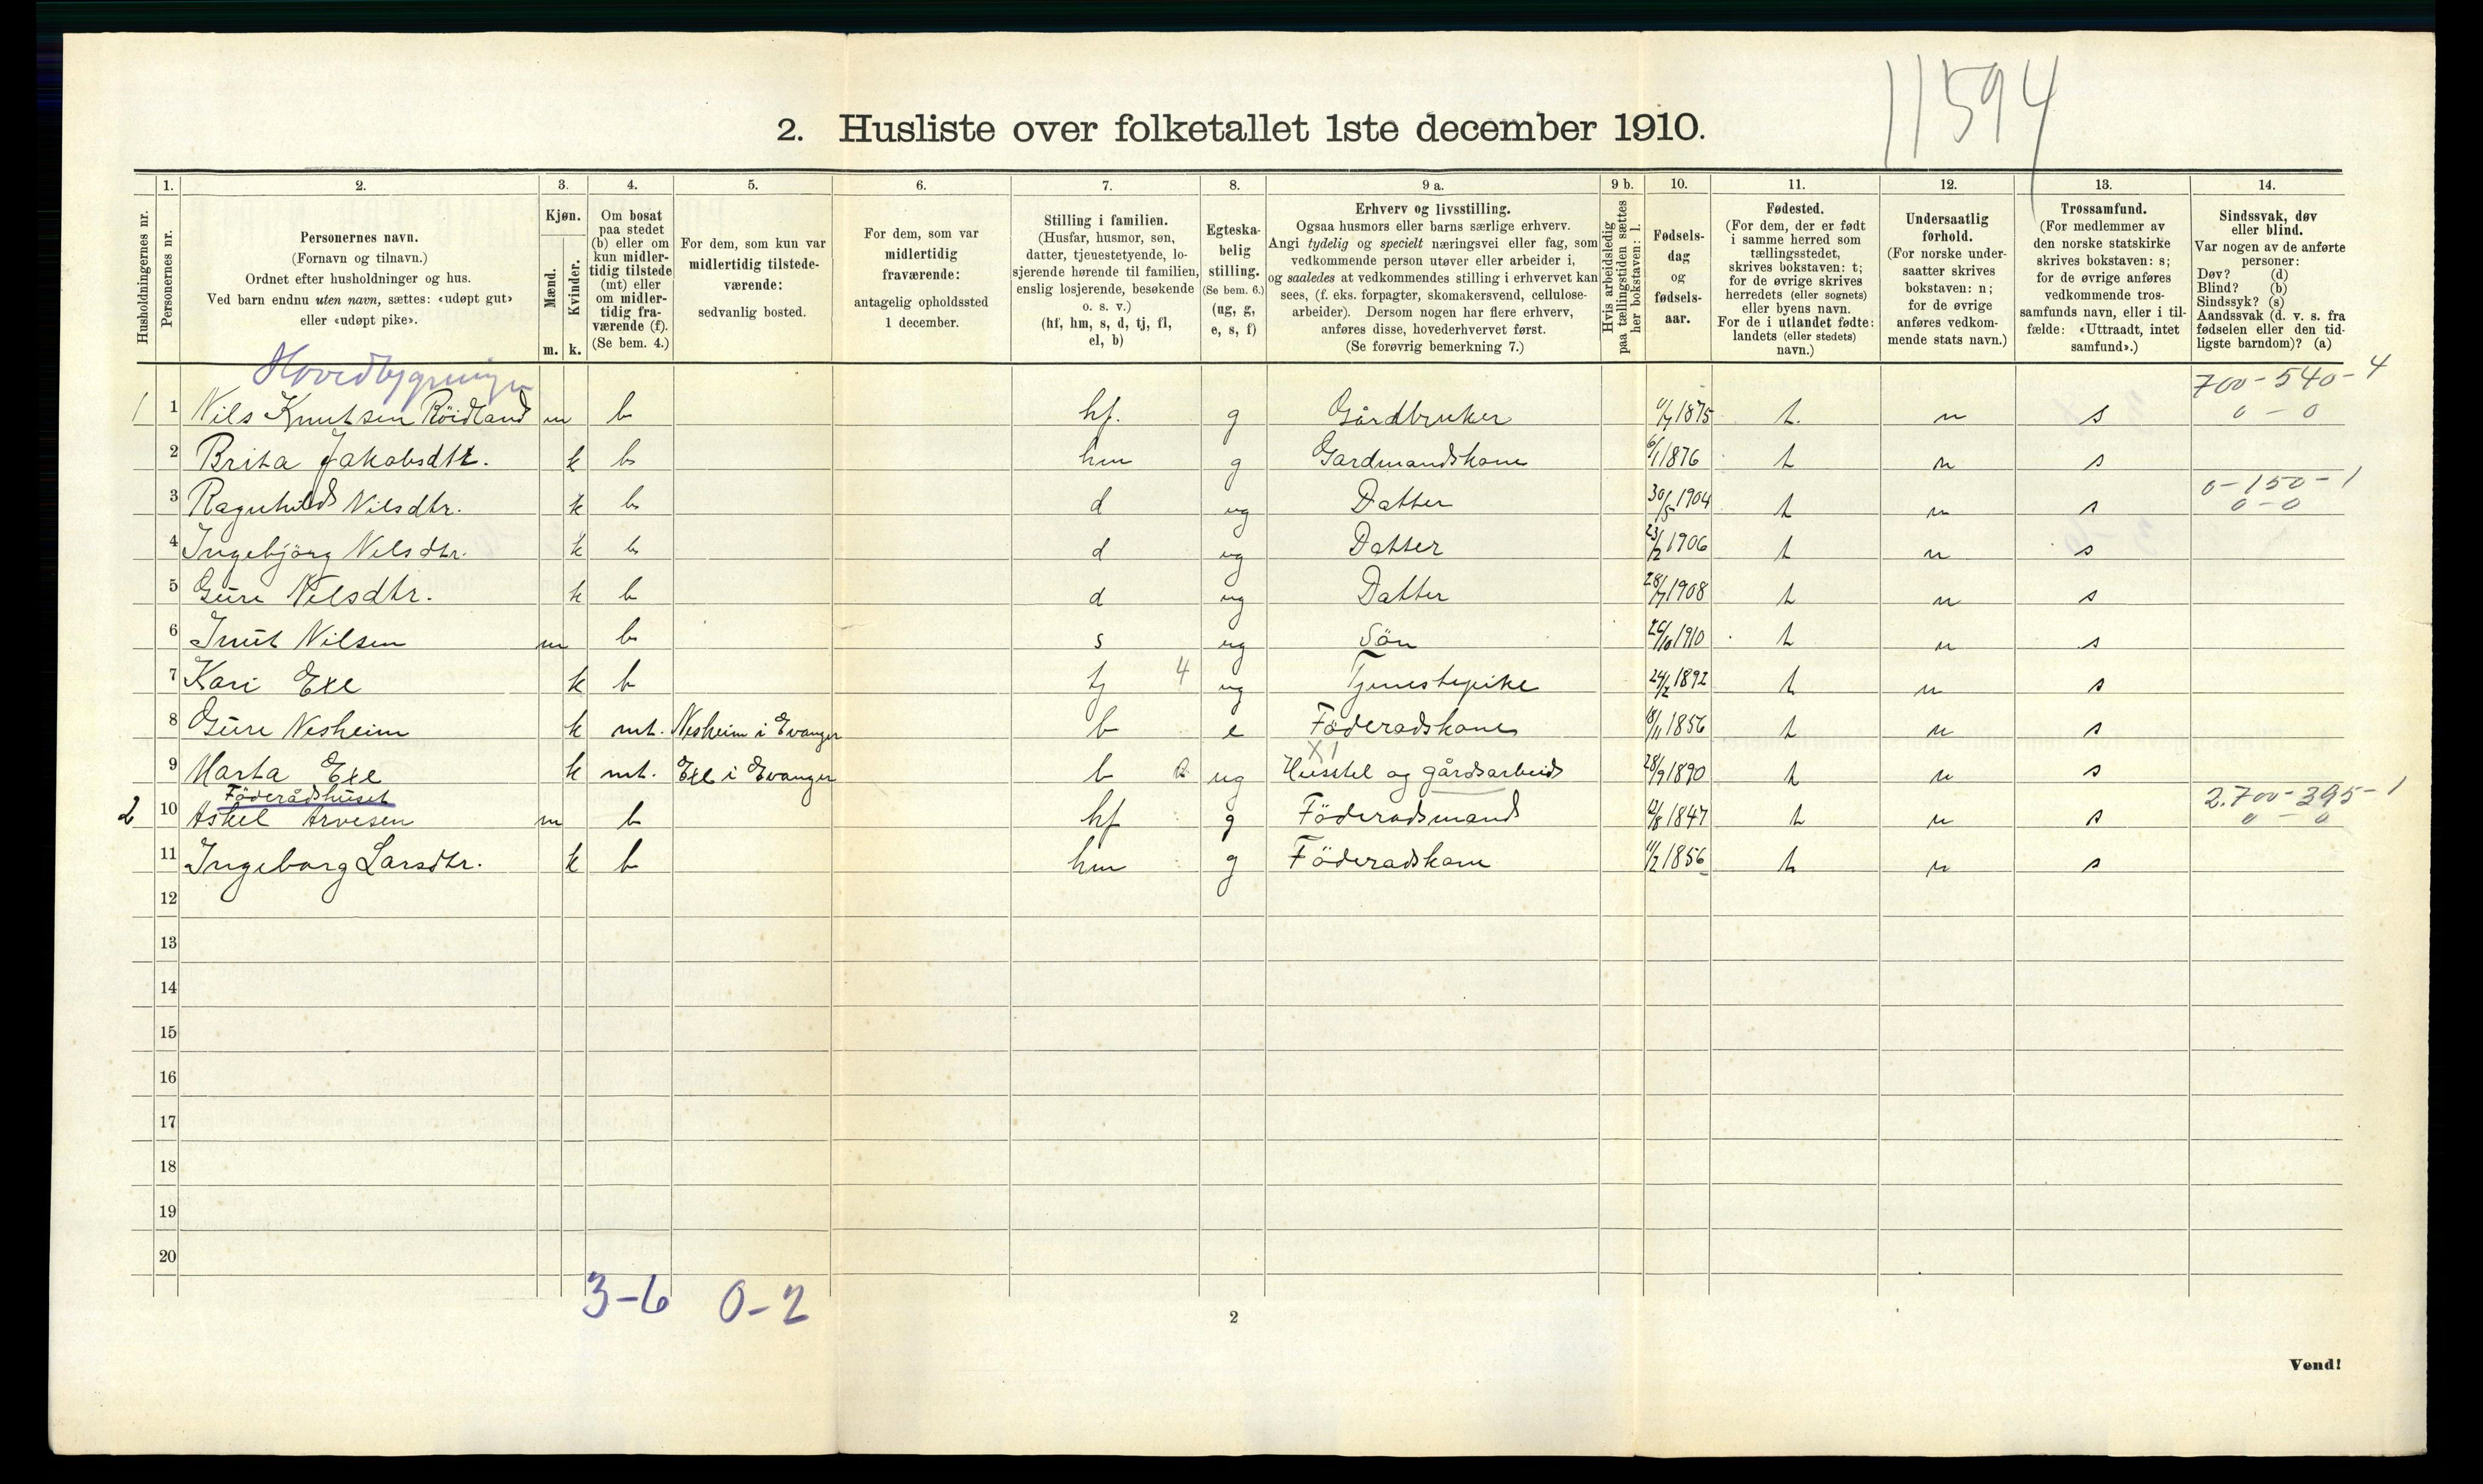 11594
2. Husliste over folketallet 1ste december 1910.
1. 2. 3. 4. 5. 6. 7. 8. 9 a. 9 b. 10. 11. 12. 13. 14.
Husholdningernes nr.
Personernes nr.
Personernes navn.
(Fornavn og tilnavn.)
Ordnet efter husholdninger og hus.
Ved barn endnu uten navn, sættes: «udøpt gut»
eller «udøpt pike».
Kjøn.
Mænd.
Kvinder.
m. k.
Om bosat
paa stedet
(b) eller om
kun midler-
tidig tilstede
(mt) eller
om midler-
tidig fra-
værende (f).
(Se bem. 4.)
For dem, som kun var
midlertidig tilstede-
værende:
sedvanlig bosted.
For dem, som var
midlertidig
fraværende:
antagelig opholdssted
1 december.
Stilling i familien.
(Husfar, husmor, søn,
datter, tjenestetyende, lo-
sjerende hørende til familien,
enslig losjerende, besøkende
o. s. v.)
(hf, hm, s, d, tj, fl,
el, b)
Egteska-
belig
stilling.
(Se bem. 6.)
(ug, g,
e, s, f)
Erhverv og livsstilling.
Ogsaa husmors eller barns særlige erhverv.
Angi tydelig og specielt næringsvei eller fag, som
vedkommende person utøver eller arbeider i,
og saaledes at vedkommendes stilling i erhvervet kan
sees, (f. eks. forpagter, skomakersvend, cellulose-
arbeider). Dersom nogen har flere erhverv,
anføres disse, hovederhvervet først.
(Se forøvrig bemerkning 7.)
Hvis arbeidsledig
paa tællingstiden sættes
her bokstaven: l.
Fødsels-
dag
og
fødsels-
aar.
Fødested.
(For dem, der er født
i samme herred som
tællingsstedet,
skrives bokstaven: t;
for de øvrige skrives
herredets (eller sognets)
eller byens navn.
For de i utlandet fødte:
landets (eller stedets)
navn.)
Undersaatlig
forhold.
(For norske under-
saatter skrives
bokstaven: n;
for de øvrige
anføres vedkom-
mende stats navn.)
Trossamfund.
(For medlemmer av
den norske statskirke
skrives bokstaven: s;
for de øvrige anføres
vedkommende tros-
samfunds navn, eller i til-
fælde: «Uttraadt, intet
samfund».)
Sindssvak, døv
eller blind.
Var nogen av de anførte
personer:
Døv? (d)
Blind? (b)
Sindssyk? (s)
Aandssvak (d. v. s. fra
fødselen eller den tid-
ligste barndom)? (a)
Hovedbygningen
700-540-4
1 1 Nils Knutsen Röidland m b hf. g Gårdbruker 1875 t. n s 0-0
2 Brita Jakobsdtr. k b hm g Gardmandskone 6/1 1876 t n s
0-150-1
3 Ragnhild Nilsdtr. k b d ug Datter 30/5 1904 t n s 0-0
4 Ingebjörg Nilsdtr. k b d ug Datter 23/2 1906 t n s
5 Güri Nilsdtr. k b d ug Datter 28/7 1908 t n s
6 Nilsen m b s ug Sön 26/10 1910 t n s
7 Kari Exe k b tj 4 ug Tjenestepike 24/2 1892 t n s
8 Güri Nesheim k mt. Nesheim i Evanger b e Föderadskone 18/11 1856 t n s
X1
9 Marta Exe k mt. Exe i Evanger b ug Husstel og gårdsarbeid 28/9 1890 t n s
Föderådshuset
2.700-395-1
2 10 Askel Arvesen m b hf g Föderadsmand 12/8 1847 t n s 0-0
11 Ingeborg Larsdtr. k b hm g Föderadskone 11/2 1856 t n s
12
13
14
15
16
17
18
19
20
3-6 0-2
2
Vend!